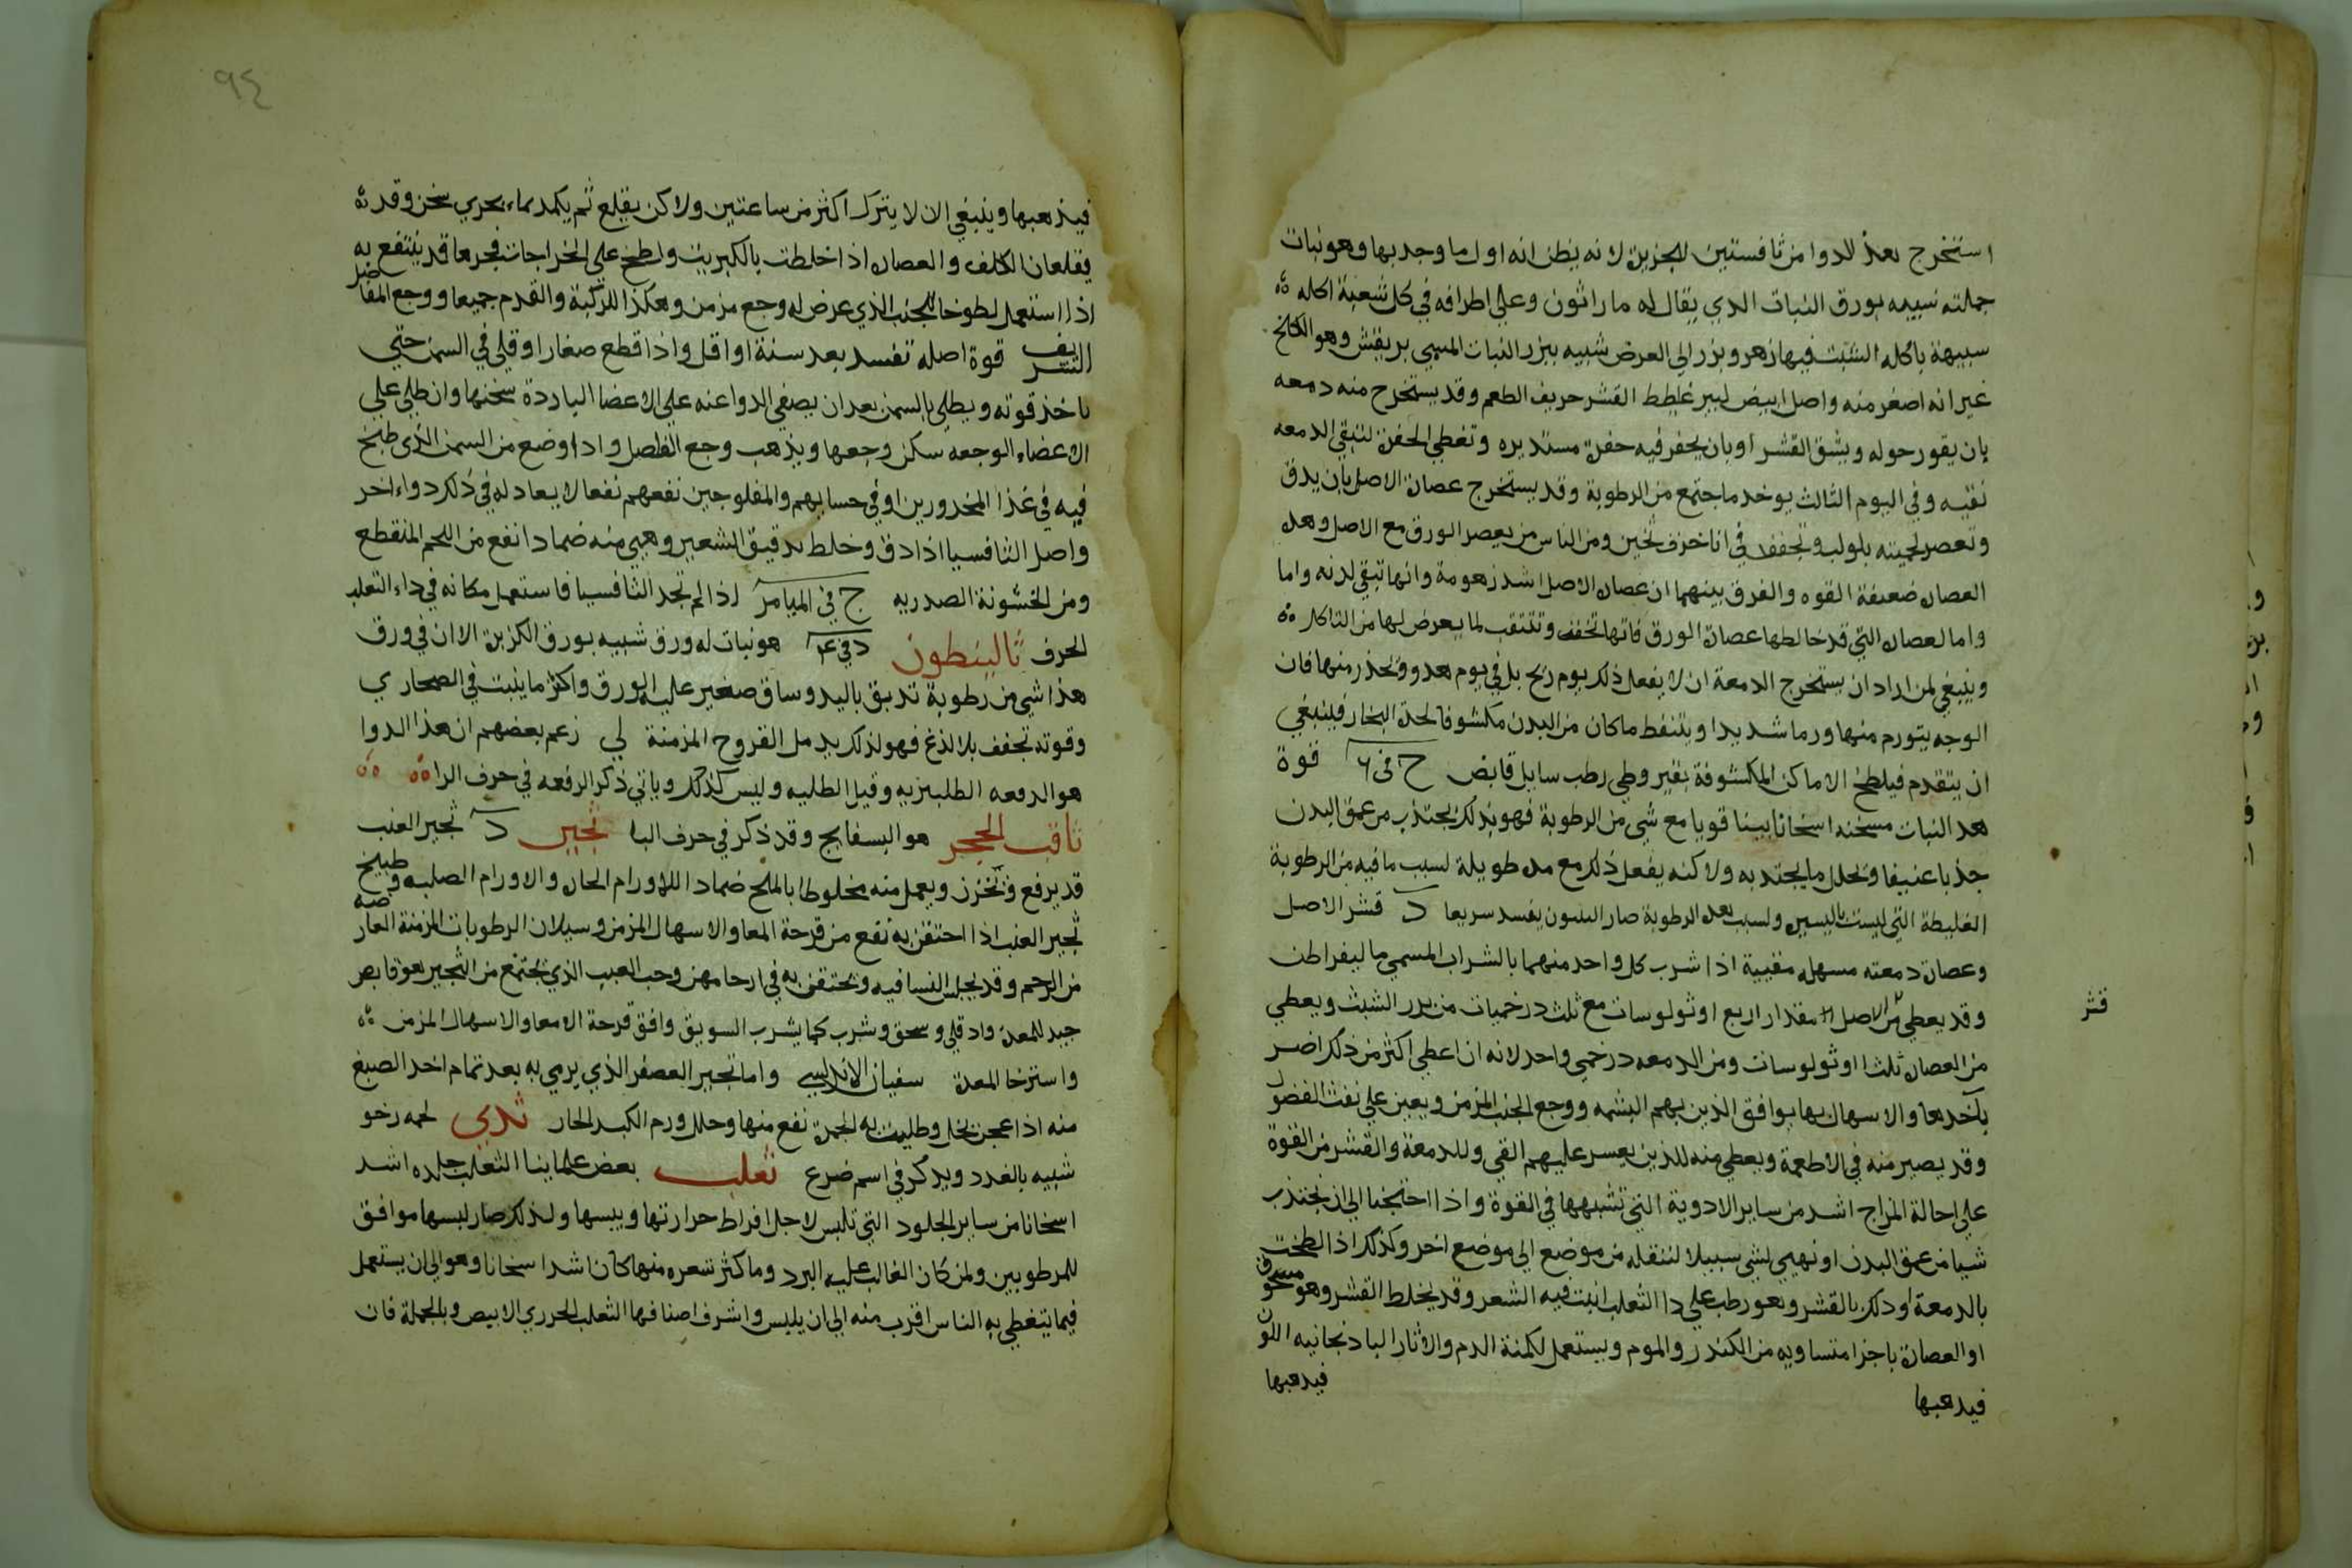 استخرج هذا الدوا من ثافستين الجزيرة لانه يظن انه اول ما وجد بها وهو نبات
جملته شبيه بورق النبات الذي يقال له ماراثون وعلي اطرافه في كل شعبة اكله
شبيهة باكله الشبت فيها زهر وبزر الي العرض شبيه ببزر النبات المسمي بريقش وهو الكلخ
غير انه اصغر منه واصل ابيض كبير غليظ القشر حريف الطعم وقد يستخرج منه دمعه
بان يقور حوله ويشق القشر او بان يحفر فيه حفرة مستديره وتغطي الحفرة لتبقي الدمعه
نقيه وفي اليوم الثالث يوخد ما اجتمع من الرطوبة وقد يستخرج عصارة الاصل بان يدق
وتعصر لحميته بلولب وتجفف في انا خزف ثخين ومن الناس من يعصر الورق مع الاصل وهده
العصاره ضعيفة القوه والفرق بينهما ان عصارة الاصل اشد زهومة وانها تبقي لدنه واما
واما العصاره التي قد خالطها عصارة الورق فانها تجفف وتتثقب لما يعرض لها من التاكل
وينبغي لمن اراد ان يستخرج الدمعة ان لا يفعل ذلك يوم ريح بل في يوم هدو ويحذر منها فان
الوجه يتورم منها ورما شديدا ويتنفط ما كان من البدن مكشوفا لحدة البخار فينبغي
ان يتقدم فيلطخ الاماكن المكشوفة بقيروطي رطب سايل قابض ج في ٦ قوة
هدا النبات مسخنه اسخانا بينا قويا مع شي من الرطوبة فهو بذلك يجتذب من عمق البدن
جذبا عنيفا ويحلل ما يجتذبه ولاكنه يفعل ذلك مع مده طويلة لسبب ما فيه من الرطوبة
الغليظة التي ليست باليسيره ولسبب هده الرطوبة صار الينبون يفسد سريعا د قشر الاصل
وعصارة دمعته مسهله مقيية اذا شرب كل واحد منهما بالشراب المسمي ماليقراطن
وقد يعطي من الاصل مقدار اربع اوثولوسات مع ثلث درخميات من بزر الشبث ويعطي
من العصاره ثلث اوثولوسات ومن الدمعه درخمي واحد لانه ان اعطي اكثر من ذلك اضر
باخدها والاسهال بها يوافق الذين بهم البشمه ووجع الجنب المزمن ويعين علي نفث الفضول
وقد يصير منه في الاطعمة ويعطي منه للذين يعسر عليهم القي وللدمعة والقشر من القوة
علي احالة المزاج اشد من ساير الادوية التي تشبهها في القوة واذا احتجنا الي ان نجتذب
شيا من عمق البدن او نهيي لشي سبيلا لننقله من موضع الي موضع اخر وكذلك اذا لطخت
بالدمعة او دلك بالقشر وهو رطب علي دا الثعلب انبت فيه الشعر وقد يخلط القشر وهو مسحوق
او العصارة باجزا متساويه من الكندر والموم ويستعمل لكمنة الدم والاثار الباذنجانيه اللون
فيدهبها
فيدهبها
قثر
٩٤
فيذهبها وينبغي الان لا يترك اكثر من ساعتين ولاكن يقلع ثم يكمد بماء بحري سخن وقد
يقلعان الكلف والعصاره اذا خلطت بالكبريت ولطخ علي الخراجات فجرها قد ينتفع به
اذا استعمل لطوخا للجنب الذي عرض له وجع مزمن وهكذا للركبة والقدم جميعا ووجع المفاصل
الشريف قوة اصله تفسد بعد سنة او اقل واذا قطع صغارا وقلي في السمن حتي
ياخذ قوته ويطلي بالسمن بعد ان يصفي الدوا عنه علي الاعضا الباردة سخنها وان طلي علي
الاعضاء الوجعه سكن وجعها ويذهب وجع المفاصل واذا وضع من السمن الذي طبخ
فيه في غذا المخدورين او في حسايهم والمفلوجين نفعهم نفعا لا يعادله في ذلك دواء اخر
واصل الثافسيا اذا دق وخلط بدقيق الشعير وهيي منه ضمادا نفع من اللحم المنقطع
ومن الخشونة الصدريه ج في الميامر اذا لم تجد الثافسيا فاستعمل مكانه في داء الثعلب
الحرف ثاليثطون د في ع٤ هو نبات له ورق شبيه بورق الكزبرة الا ان في ورق
هذا شي من رطوبة تدبق باليد وساق صغير عليه الورق واكثر ما ينبت في الصحاري
وقوته تجفف بلا لذع فهو لذلك يدمل القروح المزمنة لي زعم بعضهم ان هذا الدوا
هو الدفعه الطلبنزيه وقيل الطلبيه وليس كذلك وياتي ذكر الرفعه في حرف الرا
ثاقب الحجر هو البسفايج وقد ذكر في حرف البا ثجير د ثجير العنب
قد يرفع ويخزن ويعمل منه مخلوطا بالملح ضمادا للاورام الحاره والاورام الصلبه وطبيخ
ثجير العنب اذا احتقن به نفع من قرحة المعا والاسهال المزمن وسيلان الرطوبات المزمنة العارضه
من الرحم وقد يجلس النسا فيه ويحتقن به في ارحامهن وحب العنب الذي يجتمع من الثجير هو قابض
جيد للمعدة واد قلي وسحق وشرب كما يشرب السويق وافق قرحة الامعا والاسهال المزمن
واسترخا المعدة سفيان الاندلسي واما ثجير العصفر الذي يرمي به بعد تمام اخد الصبغ
منه اذا عجن بخل وطليت به الحمرة نفع منها وحلل ورم الكبد الحار ثدي لحمه رخو
شبيه بالغدد ويدكر في اسم ضرع ثعلب بعض علماينا الثعلب جلده اشد
اسخانا من ساير الجلود التي تلبس لاجل افراط حرارتها ويبسها ولذلك صار لبسها موافق
للمرطوبين ولمن كان الغالب عليه البرد وما كثر شعره منها كان اشد اسخانا وهو الي ان يستعمل
فيما يتغطي به الناس اقرب منه الي ان يلبس واشرف اصنافها الثعلب الخرري الابيض وبالجملة فان